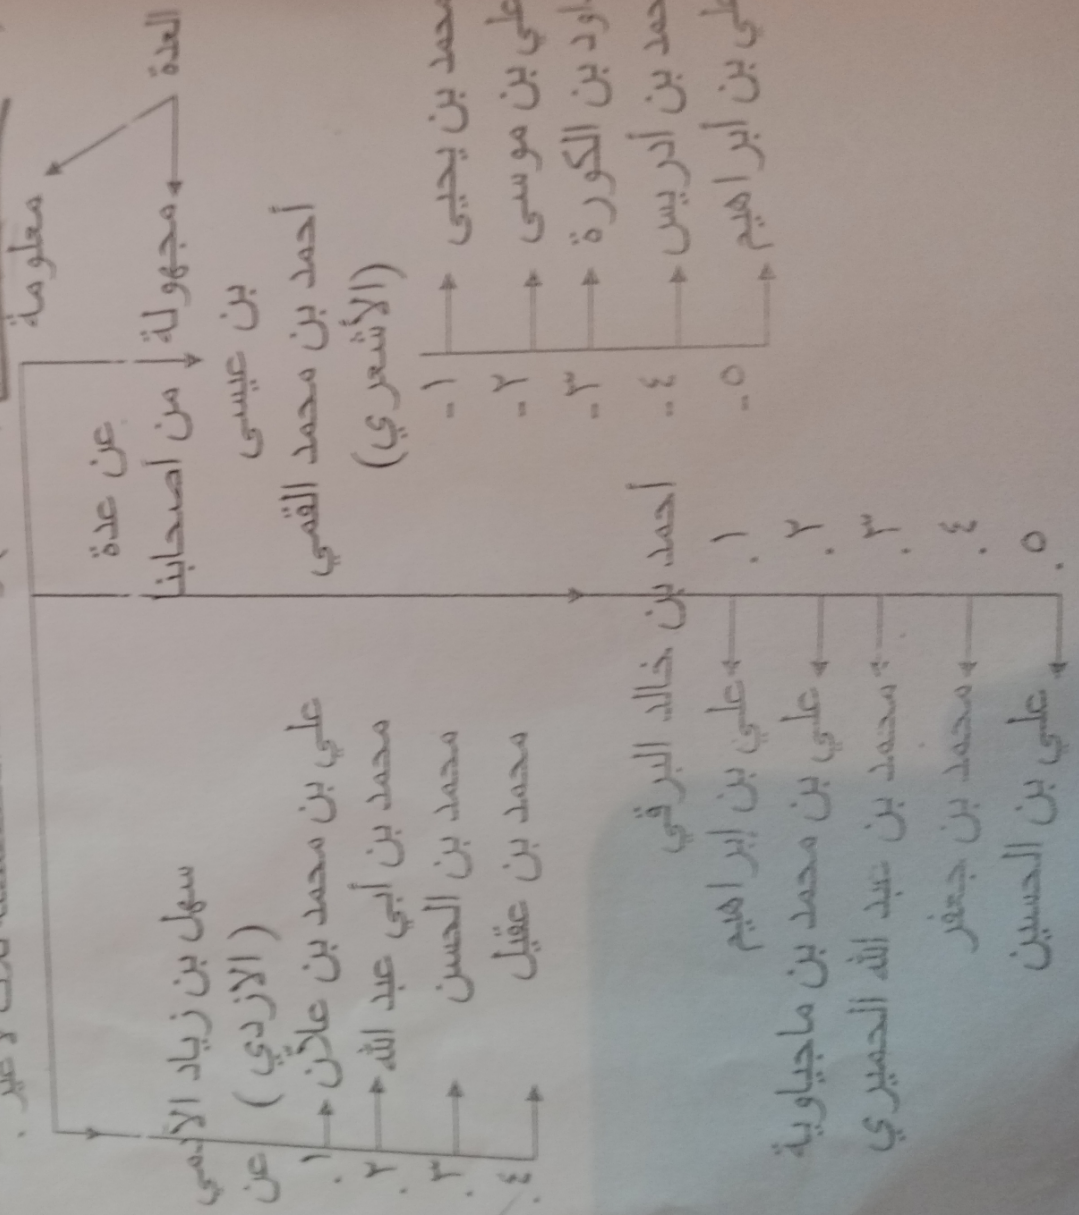 العدة
معلومة
مجهولة
عن عدة
من أصحابنا
أحمد بن محمد القمي
بن عيسى
(الأشعري)
١-
محمد بن يحيى
٢-
علي بن موسى
٣-
بن الكورة
٤-
بن أدريس
٥-
بن أبراهيم
أحمد بن خالد البرقي
١.
علي بن إبراهيم
٢.
علي بن محمد بن ماجياوية
٣.
محمد بن عبد الله الحميري
٤.
محمد بن جعفر
٥.
علي بن الحسين
سهل بن زياد الآدمي
عن (الازدي)
١.
علي بن محمد بن علان
٢.
محمد بن أبي عبد الله
٣.
محمد بن الحسن
٤.
محمد بن عقيل